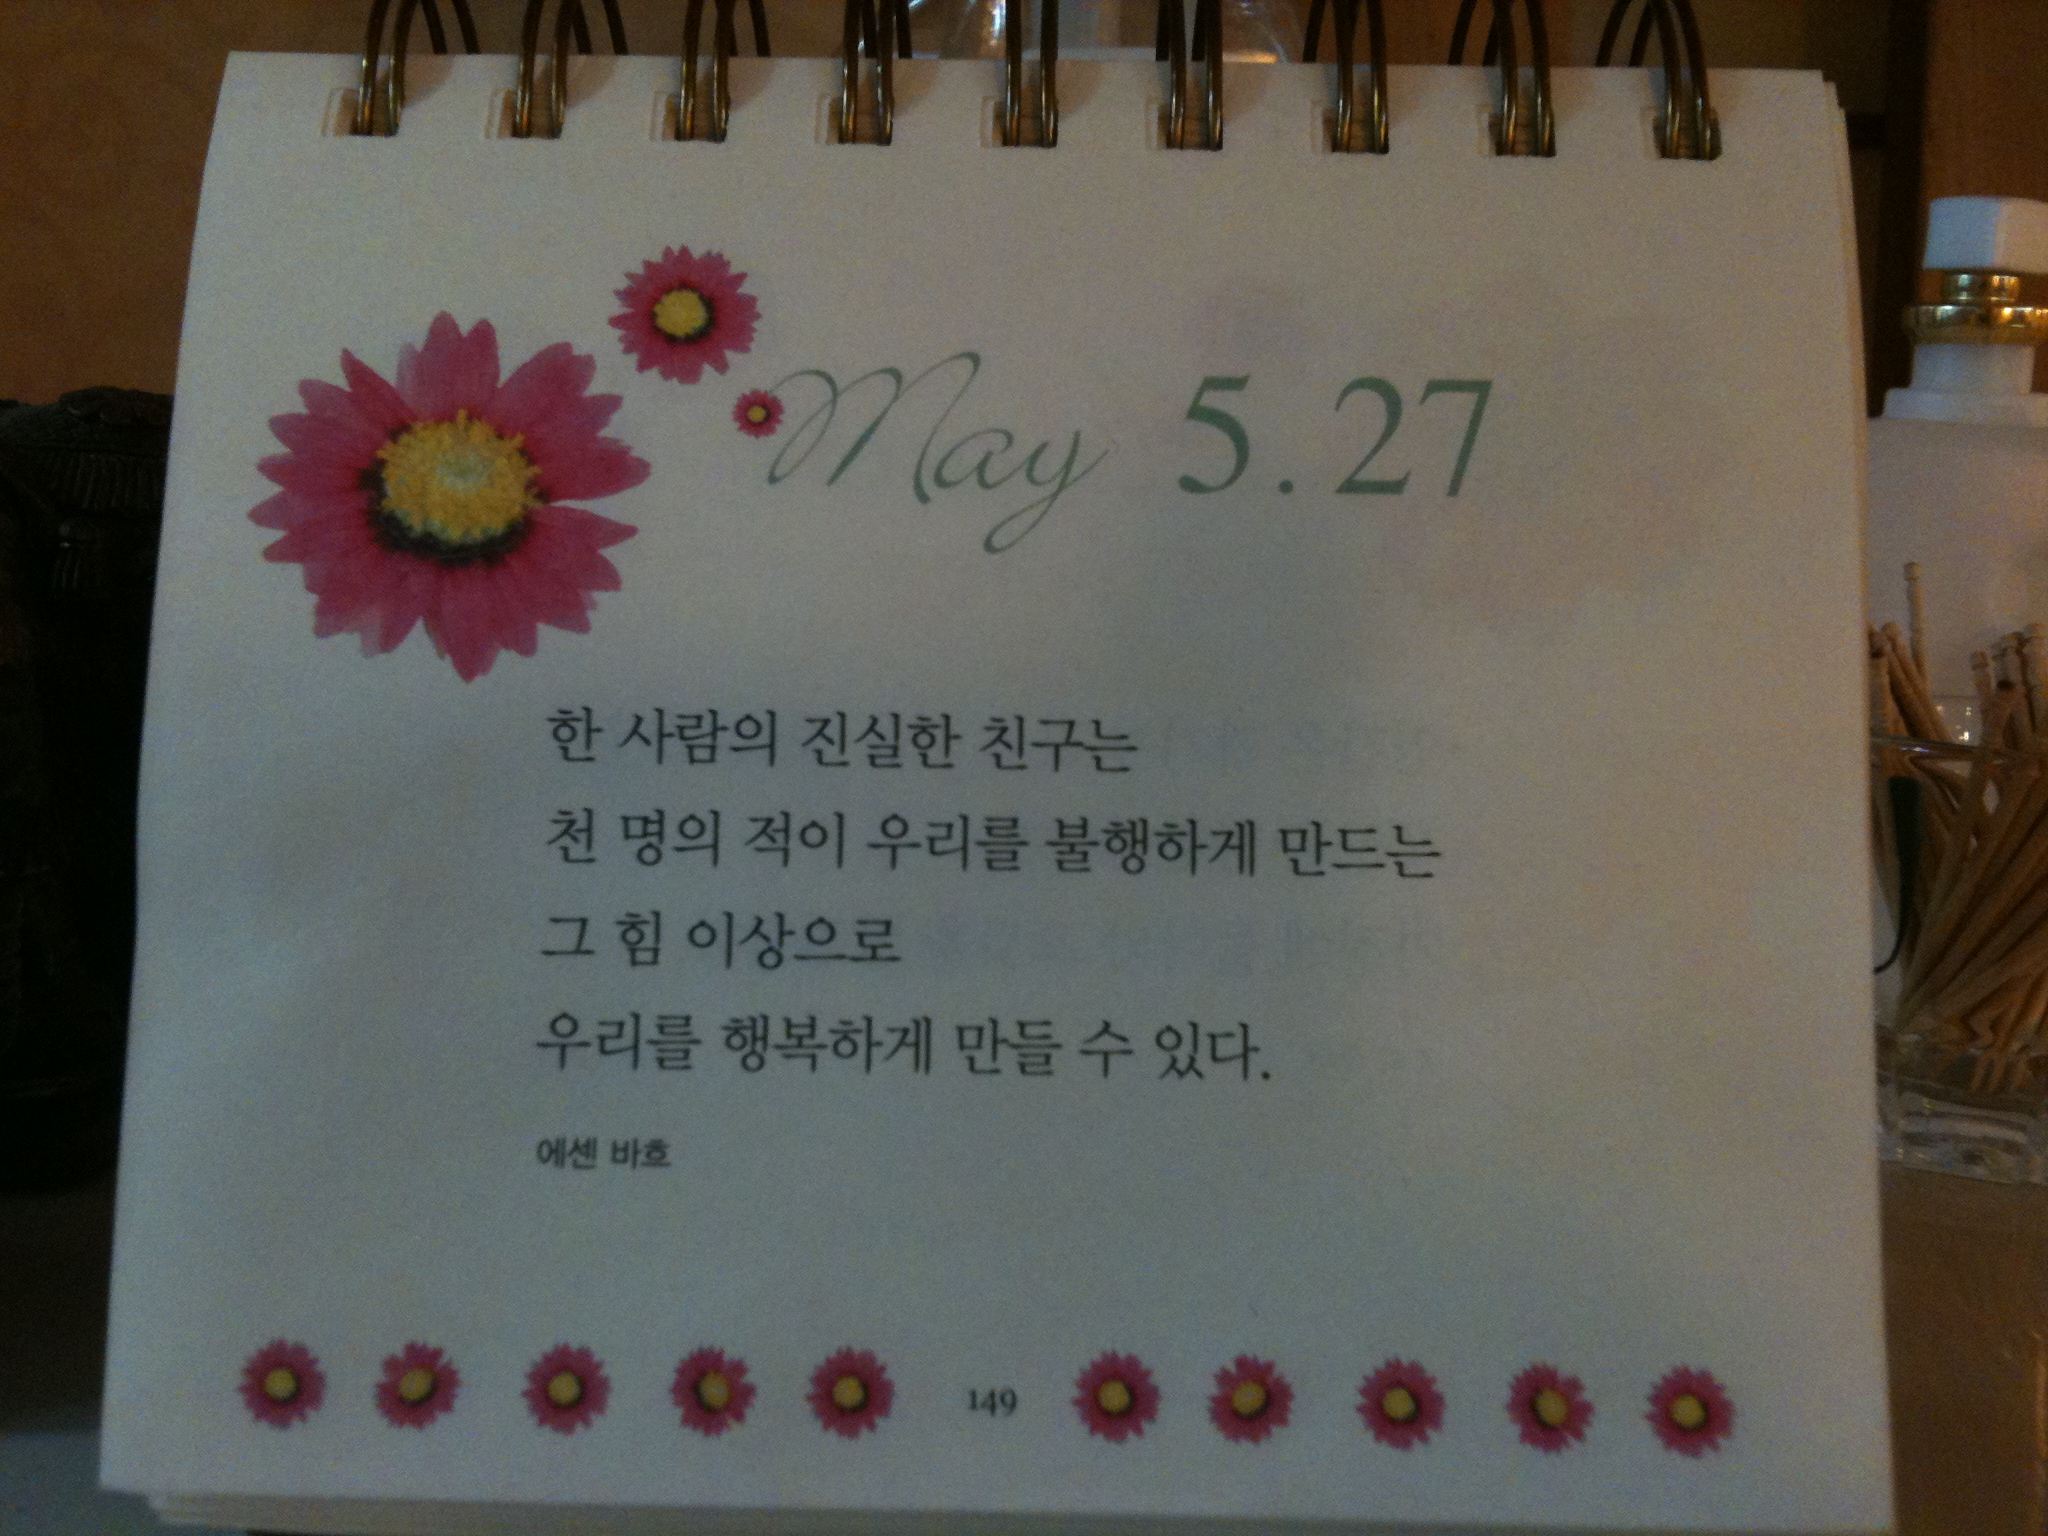 May 5.27
한 사람의 진실한 친구는
천 명의 적이 우리를 불행하게 만드는
그 힘 이상으로
우리를 행복하게 만들 수 있다.
에센 바흐
149